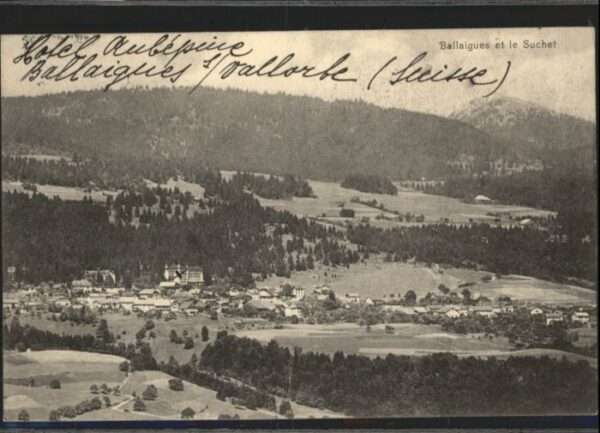 Hotel Aubépine
Ballaigues s/Vallorbe (Suisse)
Ballaigues et le Suchet